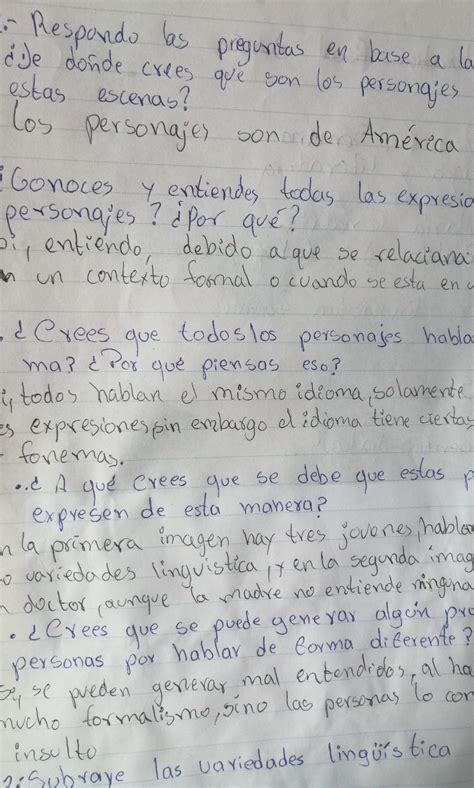 .- Respondo las preguntas en base a la
¿De donde crees que son los personajes
estas escenas?
Los personajes son de América
¿Conoces y entiendes todas las expresio
personajes? ¿Por qué?
Si, entiendo, debido a que se relaciona
n un contexto formal o cuando se esta en
. ¿Crees que todos los personajes habla
ma? ¿Por qué piensas eso?
i, todos hablan el mismo idioma, solamente
es expresiones, sin embargo el idioma tiene ciertas
fonemas.
..¿A qué crees que se debe que estas p
expresen de esta manera?
n la primera imagen hay tres jovenes, hablan
o variedades linguistica, y en la segunda imag
n doctor, aunque la madre no entiende ninguna
. ¿Crees que se puede generar algún pro
personas por hablar de forma diferente?
Si, se pueden generar mal entendidos, al ha
mucho formalismo, sino las personas lo con
insulto
2. Subraye las variedades lingüística